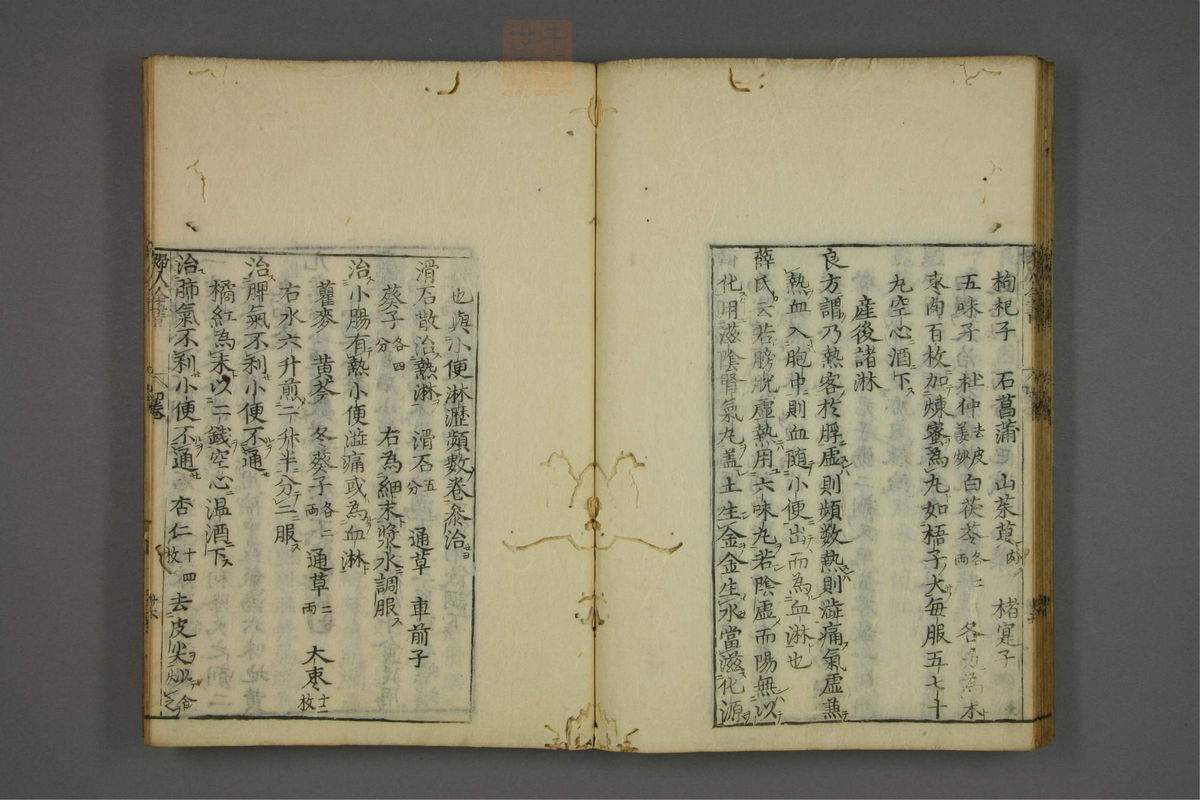 枸杞子 石菖蒲 山茱萸肉 楮寔子
五味子 杜仲去皮姜炒 白茯苓各二両 各為末
棗肉百枚加煉蜜為丸如梧子大每服五七十
九空心酒下
産後諸淋
良方謂乃熱客於脬虛則頻数熱則澁痛氣虛兼
熱血入胞中則血随小便出而為血淋也
薛氏云若膀胱虛熱用六味丸若陰虛而陽無以
化用滋陰腎氣丸蓋土生金金生水當滋化源
也與小便淋瀝頻數卷叅治
滑石散治熱淋 滑石五分 通草 車前子
葵子各四分 右為細末漿水調服
治小腸有熱小便澁痛或為血淋
瞿麥 黄芩 冬葵子各二両 通草二両 大枣十二枚
右水六升煎二升半分二服
治脾氣不利小便不通
橘紅為末以二錢空心温酒下
治肺氣不利小便不通 杏仁十四枚 去皮尖